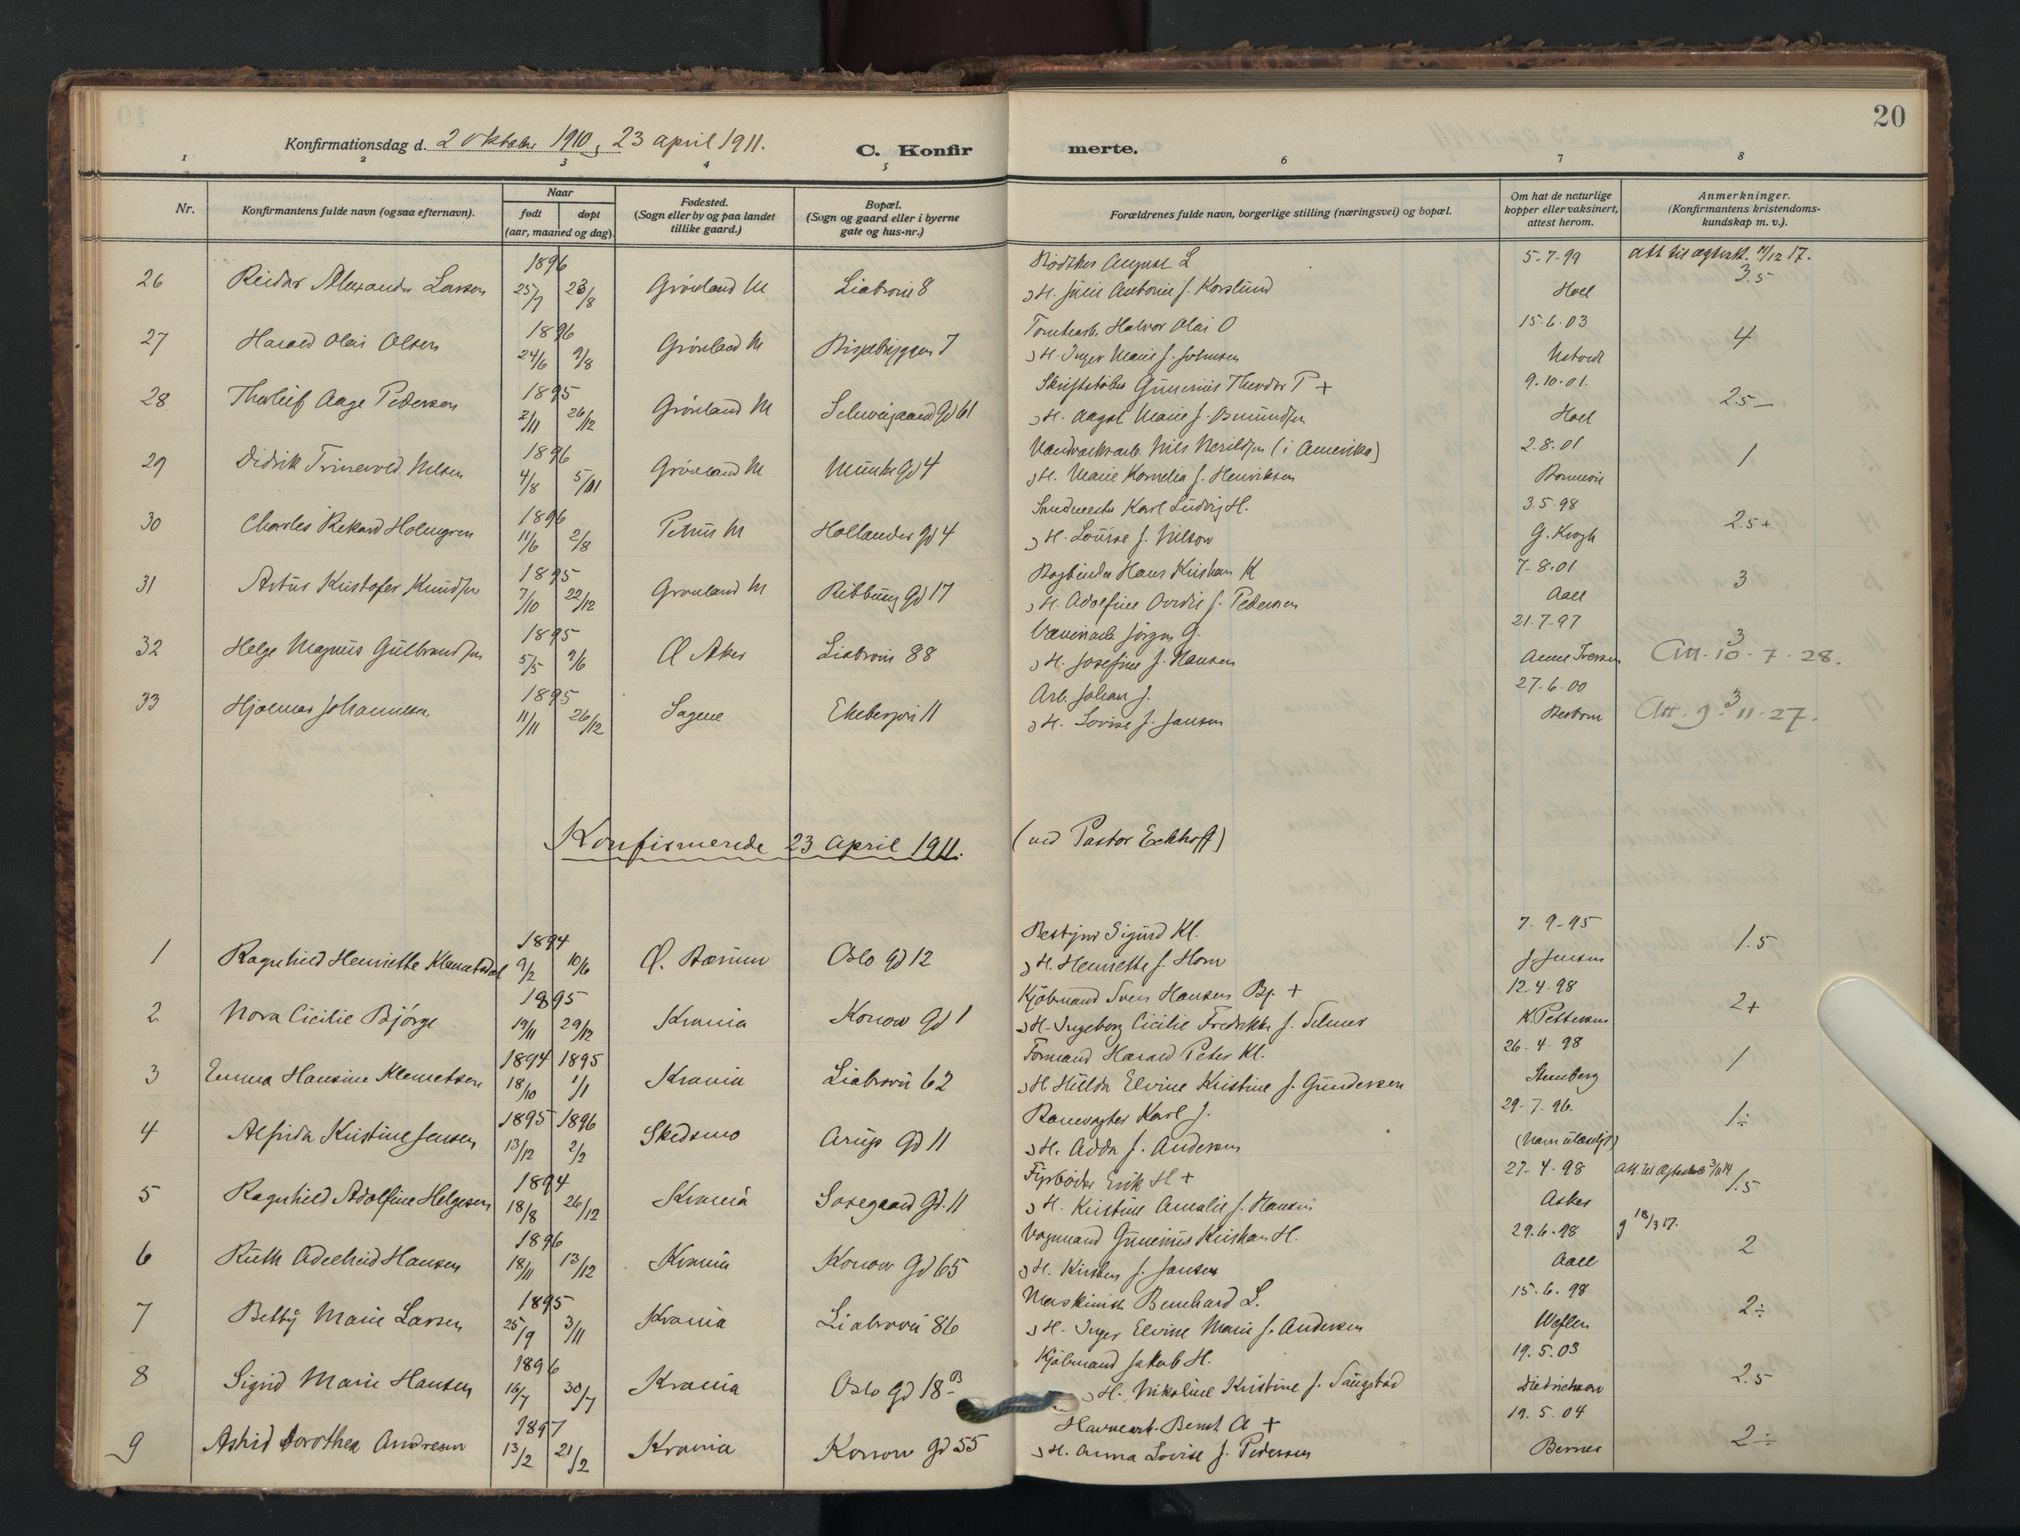 20
Konfirmationsdag d. 2 Oktober 1910, 23 april 1911.
C. Konfirmerte.
1 2 3 4 5 6 7 8
Nr.
Konfirmantens fulde navn (ogsaa efternavn).
Naar
født døpt
(aar, maaned og dag).
Fødested.
(Sogn eller by og paa landet
tillike gaard.)
Bopæl.
(Sogn og gaard eller i byerne
gate og hus-nr.)
Forældrenes fulde navn, borgerlige stilling (næringsvei) og bopæl.
Om hat de naturlige
kopper eller vaksinert,
attest herom.
Anmerkninger.
(Konfirmantens kristendoms-
kundskap m. v.).
1896 Bødker August L 5.7.99 att til ægtesk. 17.
26 Reidar Alexander Larsen 25/7 23/8 Grønland M Liabroveien 8 H. Julie Antonie f. Korslund Hoel 3.5
1896 Tomtearb. Halvor Olai O 15.6.03
27 Harald Olai Olsen 24/6 9/8 Grønland M Bispebryggen 7 H. Inger Marie f. Johnsen 4
1895 Skriftstøber Gunerius Theodor P + 9.10.01.
28 Thorleif Aage Pedersen 2/11 26/12 Grønland M Schweigaard Gd 61 H. Aagot Marie f. Asmundsen Hoel 2.5 –
1896 Nils (i Amerika) 2.8.01
29 Didrik Trinevold Nilsen 4/8 5/01 Grønland M Munke Gd 4 H. Marie Kornelia f. Henriksen Bonnevie 1
1896 Karl Ludvig H. 3.5.98
30 Charles Rikard Holmgren 11/6 2/8 Petrus M Hollender Gd 4 H. Lovise f. Nilson G. Krogh 2.5 +
1895 Bogbinder Hans Kristian K 7-8.01
31 Artur Kristofer Knudsen 7/10 22/12 Grønland M Ribbung Gd 17 H. Adolfine f. Pedersen Aall 3
1895 Jørgen G. 21.7-97
32 Helge Magnus Gulbrandsen 5/5 9/6 Ø Aker Liabroveien 88 H. Josefine f. Hansen Anne Iversen 3 Att. 10-7-28.
1895 Arb. Johan J. 27.6.00
33 Hjalmar Johannesen. 11/11 26/12 Sagene Ekebergvei 11 H. Lovise f. Jansen 3 Att. 9-11-27.
Konfirmerede 23 april 1911. (ved Pastor Eckhoff)
1894 Bestyrer Sigurd Kl. 7.9-95
1 Ragnhild Henriette Klemetsdal 9/2 10/6 Ø. Bærum Oslo Gd 12 H. Henriette f. Horn J. Jensen 1.5
1895 Kjøbmand Sven Hansen Bj. + 12.4.98
2 Nora Cicilie Bjørge 19/11 29/12 Krania Konow Gd 1 H. Ingeborg Cicilie Fredrikke f. Selmer K. Pettersen 2+
1894 1895 Formand Harald Peter Kl. 26-4-98
3 Emma Hansine Klemetsen 18/10 1/1 Krania Liabroveien 62 H. Hulda Elvine Kristine f. Gundersen Stenberg 1
1895 1896 Banevogter Karl J. 29-7-96.
4 Alfrida Kristine Jensen 13/12 2/2 Skedsmo Arup Gd 11 H. Adda f. Andersen (Navn ulæseligt) 1÷
1894 Fyrbøder Erik H + 27-4-98 att til ægteskab
5 Ragnhild Adolfine Helgesen 18/8 26/12 Krania Sørgaard Gd. 11 H. Kristine Amalie f. Hansen Asker 1.5
1896 Vognmand Gunerius Kristian H. 29.6.98 18/3 17.
6 Ruth Adelheid Hansen 18/11 13/12 Krania Konow Gd 65 H. Kirsten f. Jansen Aall 2
1895 Maskinist Bernhard L. 15.6.98
7 Betty Marie Larsen 25/9 3/11 Krania Liabroveien 86 H. Inger Elvine Marie f. Andersen Weflen 2÷
1896 Kjøbmand Jakob H. 19.5.03
8 Sigrid Marie Hansen 16/7 30/7 Krania Oslo Gd 18 B H. Nikoline Kristine f. Saugstad Dietrichson 2.5
1897 Havnearb. Bernt A + 19.5.04
9 Astrid Dorothea Andresen 13/2 21/2 Krania Konow Gd 55 H. Anna Lovise f. Pedersen Berner 2÷